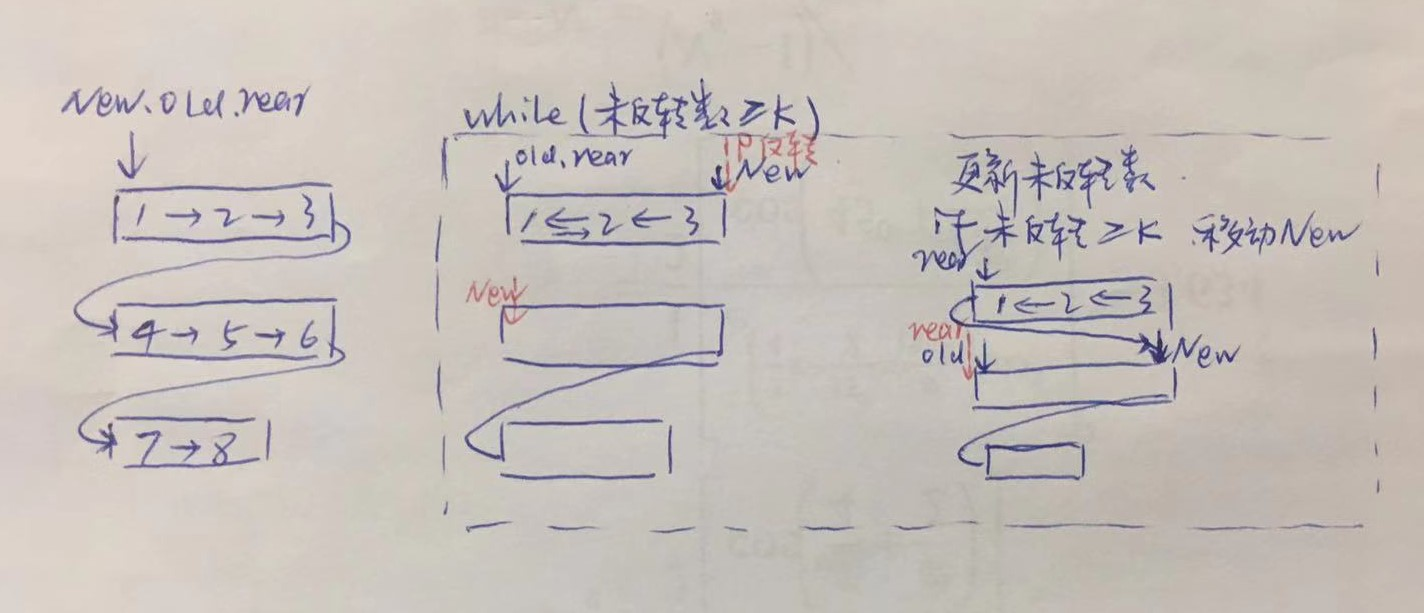 New.old.rear
1→2→3
4→5→6
7→8
while(未反转数≥K)
old.rear
P反转
New
1⇆2←3
New
更新未反转数
if 未反转≥K 移动New
rear
1←2←3
rear
old
New